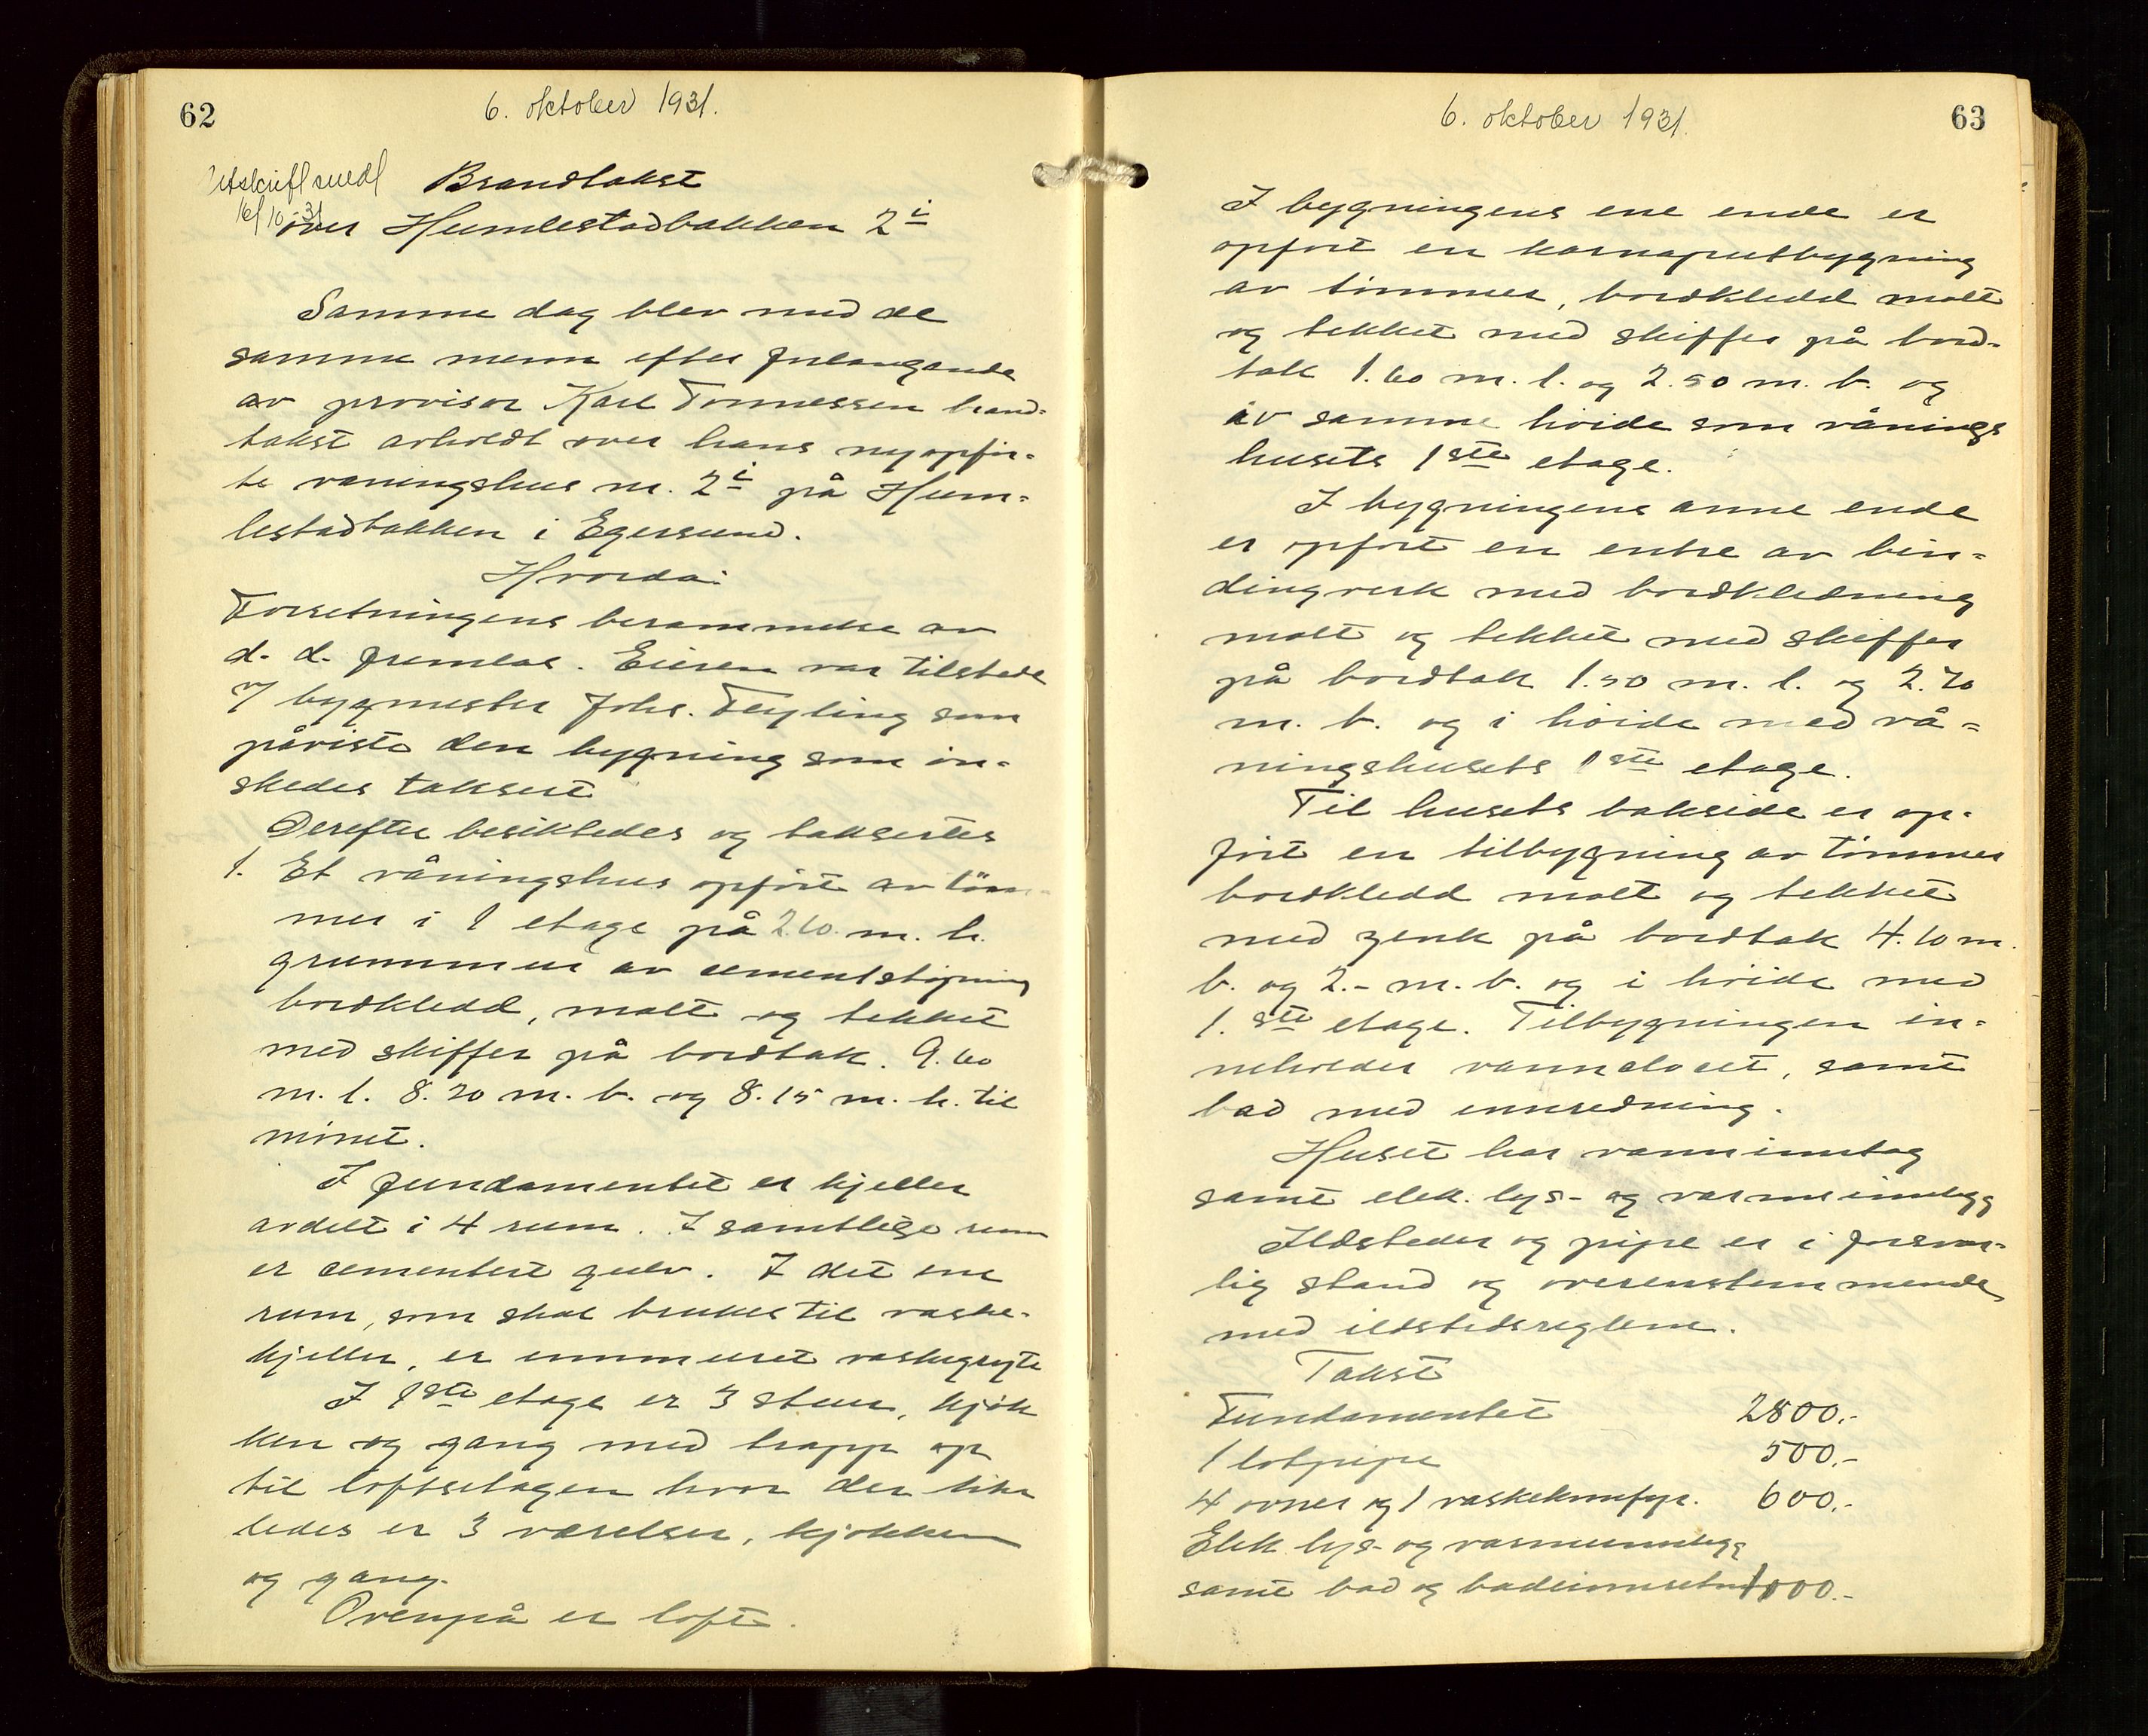 62
6. oktober 1931.
Utskrift sendt
16/10-31
Brandtakst
over Humlestadbakken 2 i
Samme dag blev med de
samme menn efter forlangande
av provisor Karl Tønnessen brand-
takst avholdt over hans nyopfør-
te vaningshus nr. 2 i på Hum-
lestadbakken i Egersund.
Hvorda:
Forretningens berammelse av
d. d. fremlas. Eieren var tilstede
v/ bygmester Johs. Feyling som
påviste den bygning som øn-
skedes taksert
Derefter besiktedes og taksertes
1. Et våningshus opført av töm-
mer i 1 etage på 2.10 m. h.
grunnmur av cementstøpning
bordkledd, malt og tekket
med skiffer på bordtak. 9.60
m. l. 8.20 m. b. og 8.15 m. h. til
mønet.
I fundamentet er kjeller
avdelt i 4 rum. I samtlige rum
er cementert gulv. I det ene
rum, som skal brukes til vaske-
kjeller, er innmuret vaskegryte
I 1ste etage er 3 stuer, kjøk
ken og gang med trapp op
til loftsetagen hvor der like
ledes er 3 værelser, kjøkken
og gang.
Ovenpå er loft.
63
6. oktober 1931.
I bygningens ene ende er
opført en karnaputbygning
av tømmer, bordkledd malt
og tekket med skiffer på bord-
tak 1.60 m. l. og 2.50 m. b. og
av samme høide som vånings
husets 1ste etage.
I bygningens anne ende
er opført en entre av bin-
dingverk med bordkledning
malt og tekket med skiffer
på bordtak 1.50 m. l. og 2.70
m. b. og i høide med vå-
ningshusets 1ste etage.
Til husets bakside er op-
ført en tilbygning av tømmer
bordkledd malt og tekket
med zenk på bordtak 4.10 m.
b. og 2.- m. b. og i høide med
1. ste etage. Tilbygningen in-
neholder vannclosett, samt
bad med innredning.
Huset har vanninntag
samt elek. lys- og varmeinnlegg
Ildsteder og pipe er i forsvar-
lig stand og overenstemmende
med ildstedsreglene.
Takst
Fundamentet 2800.-
1 løtpipe 500.-
4 ovner og 1 vaskekomfyr. 600.-
Elek lys- og varmeinnlegg
samt bad og badeinnretn 1000.-